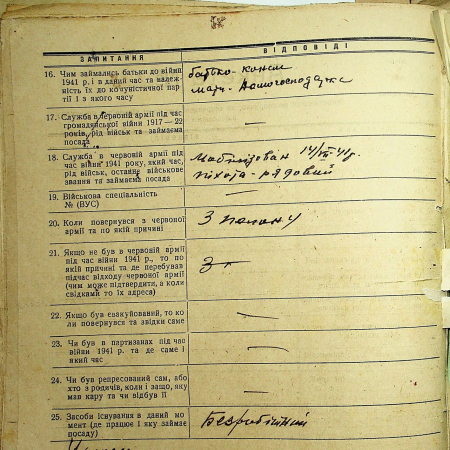 ЗАПИТАННЯ
ВІДПОВІДІ
16. Чим займались батьки до війни
1941 р. і в даний час та належ-
ність їх до комуністичної пар-
тії і з якого часу
батько - 
мати - домогосподарка
17. Служба в червоній армії під час
громадянської війни 1917—22
років, рід військ та займаєма
посада
—
18. Служба в червоній армії під
час війни 1941 року, який час,
рід військ, останнє військове
звання та займаєма посада
Мобілізован 14/VII-41р.
піхота - рядовий
19. Військова спеціальність
№ (ВУС)
—
20. Коли повернувся з червоної
армії та по якій причині
З полону
21. Якщо не був в червоній армії
під час війни 1941 р., то по
якій причині та де перебував
підчас відходу червоної армії
(чим може підтвердити, а коли
свідками то їх адреса)
22. Якщо був евакуйований, то ко-
ли повернувся та звідки саме
—
23. Чи був в партизанах під час
війни 1941 р. та де саме і
який час
—
24. Чи був репресований сам, або
хто з родичів, коли і защо, яку
мав кару та чи відбув її
—
25. Засоби існування в даний мо-
мент (де працює і яку займає
посаду)
Безробітний